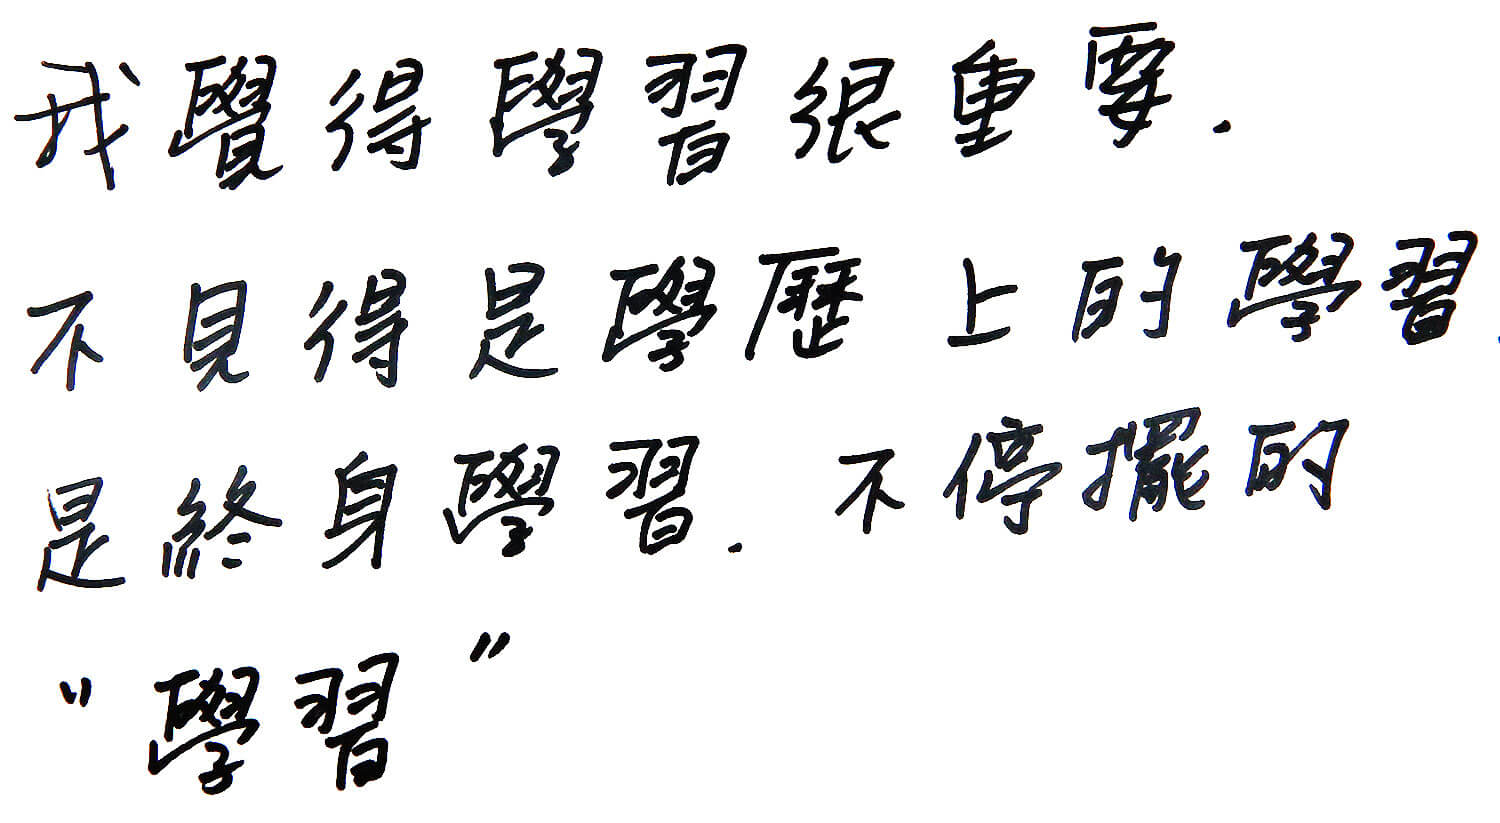 我覺得學習很重要.
不見得是學歷上的學習.
是終身學習. 不停擺的
"學習"